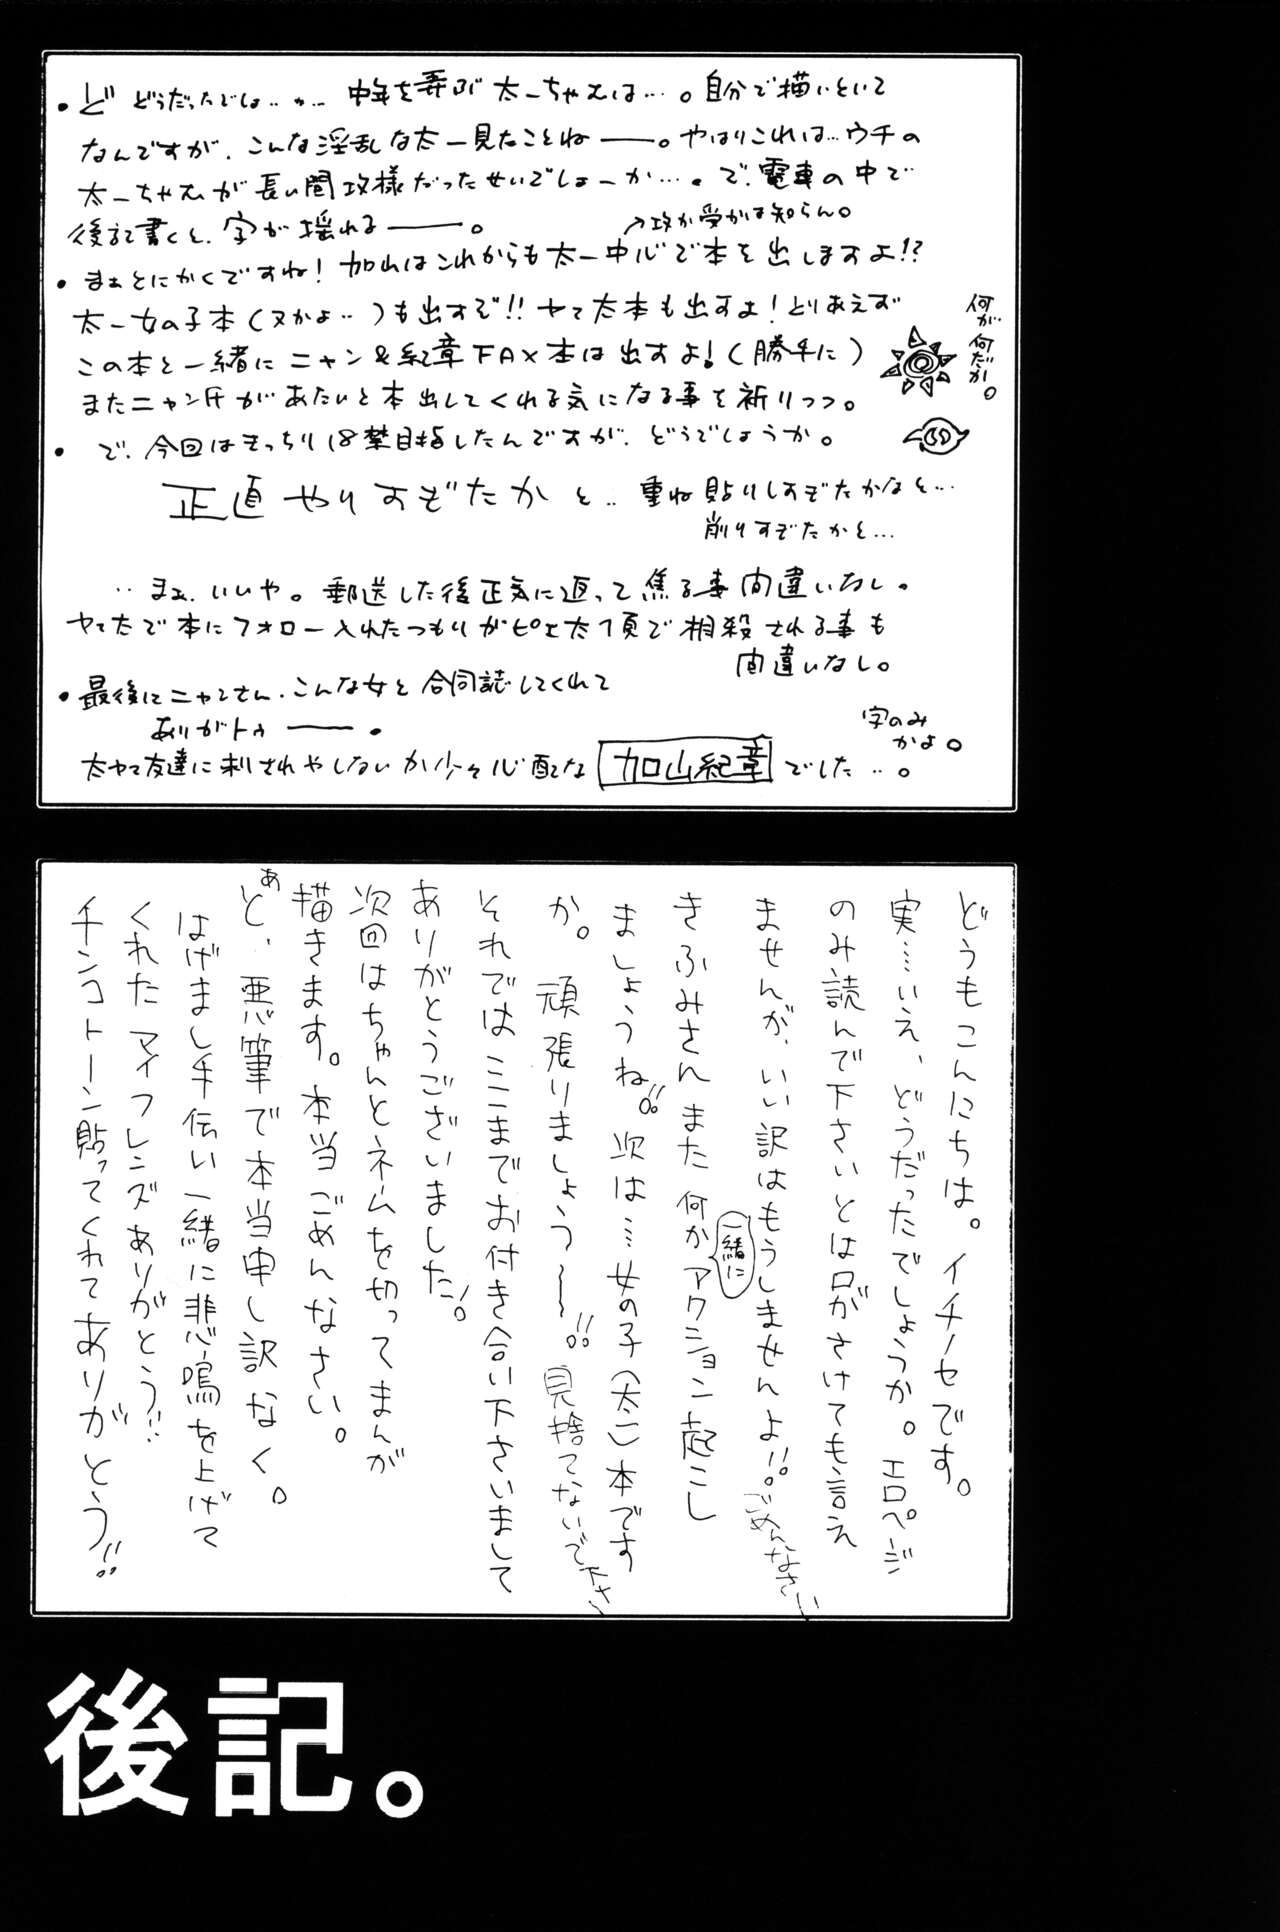 ・ど どうだったでしょ‥か… 中年を弄ぶ太一ちゃむは…。自分で描いといて
なんですが、こんな淫乱な太一見たことねーー。やはりこれは…ウチの
太一ちゃむが長い間攻様だったせいでしょーか…。で、電車の中で
後記書くと、字が揺れるーー。
→攻か受かは知らん。
・まぁとにかくですね！加山はこれからも太一中心で本を出しますよ!?
太一女の子本(又かよ‥)も出すぞ!!ヤマ太本も出すよ！とりあえず
この本と一緒にニャン&紀章FAX本は出すよ！(勝手に)
またニャン氏があたいと本出してくれる気になる事を祈りつつ。
何が何だか。
・で、今回はきっちり18禁目指したんですが、どうでしょうか。
正直やりすぎたかと‥重ね貼りしすぎたかなと…
削りすぎたかと…
‥まぁ、いいや。郵送した後正気に返って焦る事間違いなし。
ヤマ太で本にフォロー入れたつもりがピエ太1頁で相殺される事も
間違いなし。
・最後にニャンさん、こんな女と合同誌してくれて
ありがトゥーー。
字のみかよ。
太ヤマ友達に刺されやしないか少々心配な 加山紀章 でした‥。
どうもこんにちは。イチノセです。
実…いえ、どうだったでしょうか。エロページ
のみ読んで下さいとは口がさけても言え
ませんが、いい訳はもうしませんよ!!。ごめんなさい
きふみさんまた何か一緒にアクション起こし
ましょうね!!。次は…女の子(太一)本です
か。 頑張りましょう〜〜!!。見捨てないで下さ〜
それではここまでお付き合い下さいまして
ありがとうございました！
次回はちゃんとネームを切ってまんが
描きます。本当ごめんなさい。
あと、悪筆で本当申し訳なく。
はげまし手伝い一緒に悲鳴を上げて
くれたマイフレンズありがとう!!
チンコトーン貼ってくれてありがとう!!
後記。